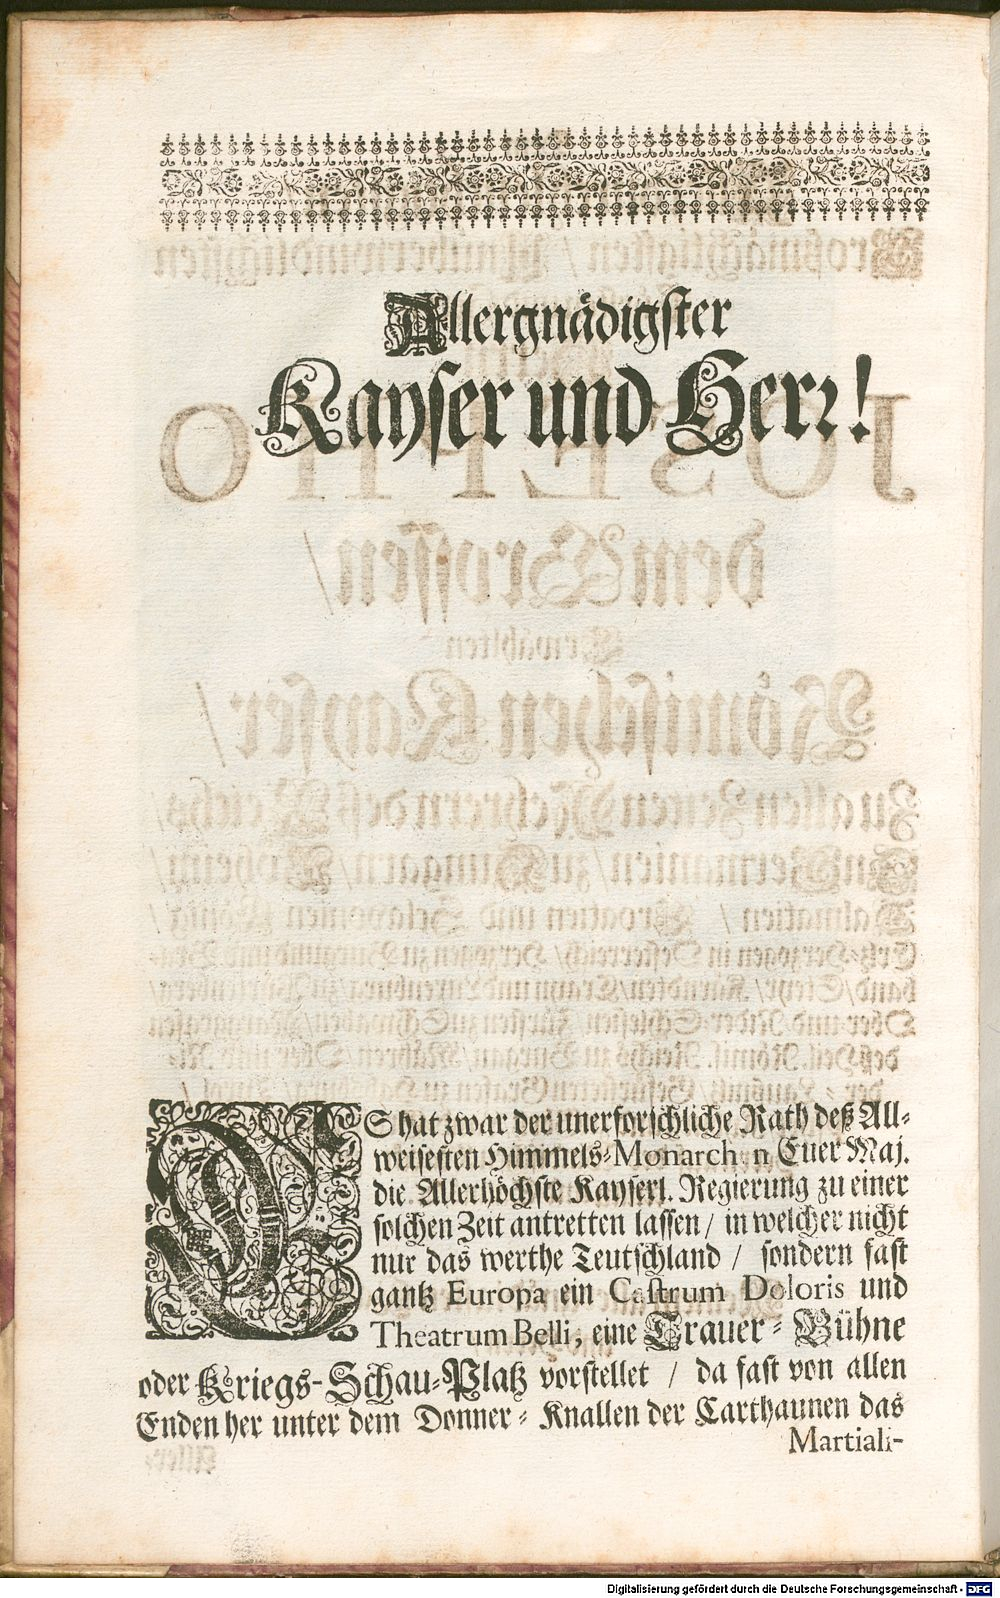 Allergnädigster
Kayser und Herr!
ES hat zwar der unerforschliche Rath deß All-
weisesten Himmels-Monarchen Euer Maj.
die Allerhöchste Kayserl. Regierung zu einer
solchen Zeit antretten lassen / in welcher nicht
nur das werthe Teutschland / sondern fast
gantz Europa ein Castrum Doloris und
Theatrum Belli, eine Trauer-Bühne
oder Kriegs-Schau-Platz vorstellet / da fast von allen
Enden her unter dem Donner-Knallen der Carthaunen das
Martiali-
Digitalisierung gefördert durch die Deutsche Forschungsgemeinschaft - DFG